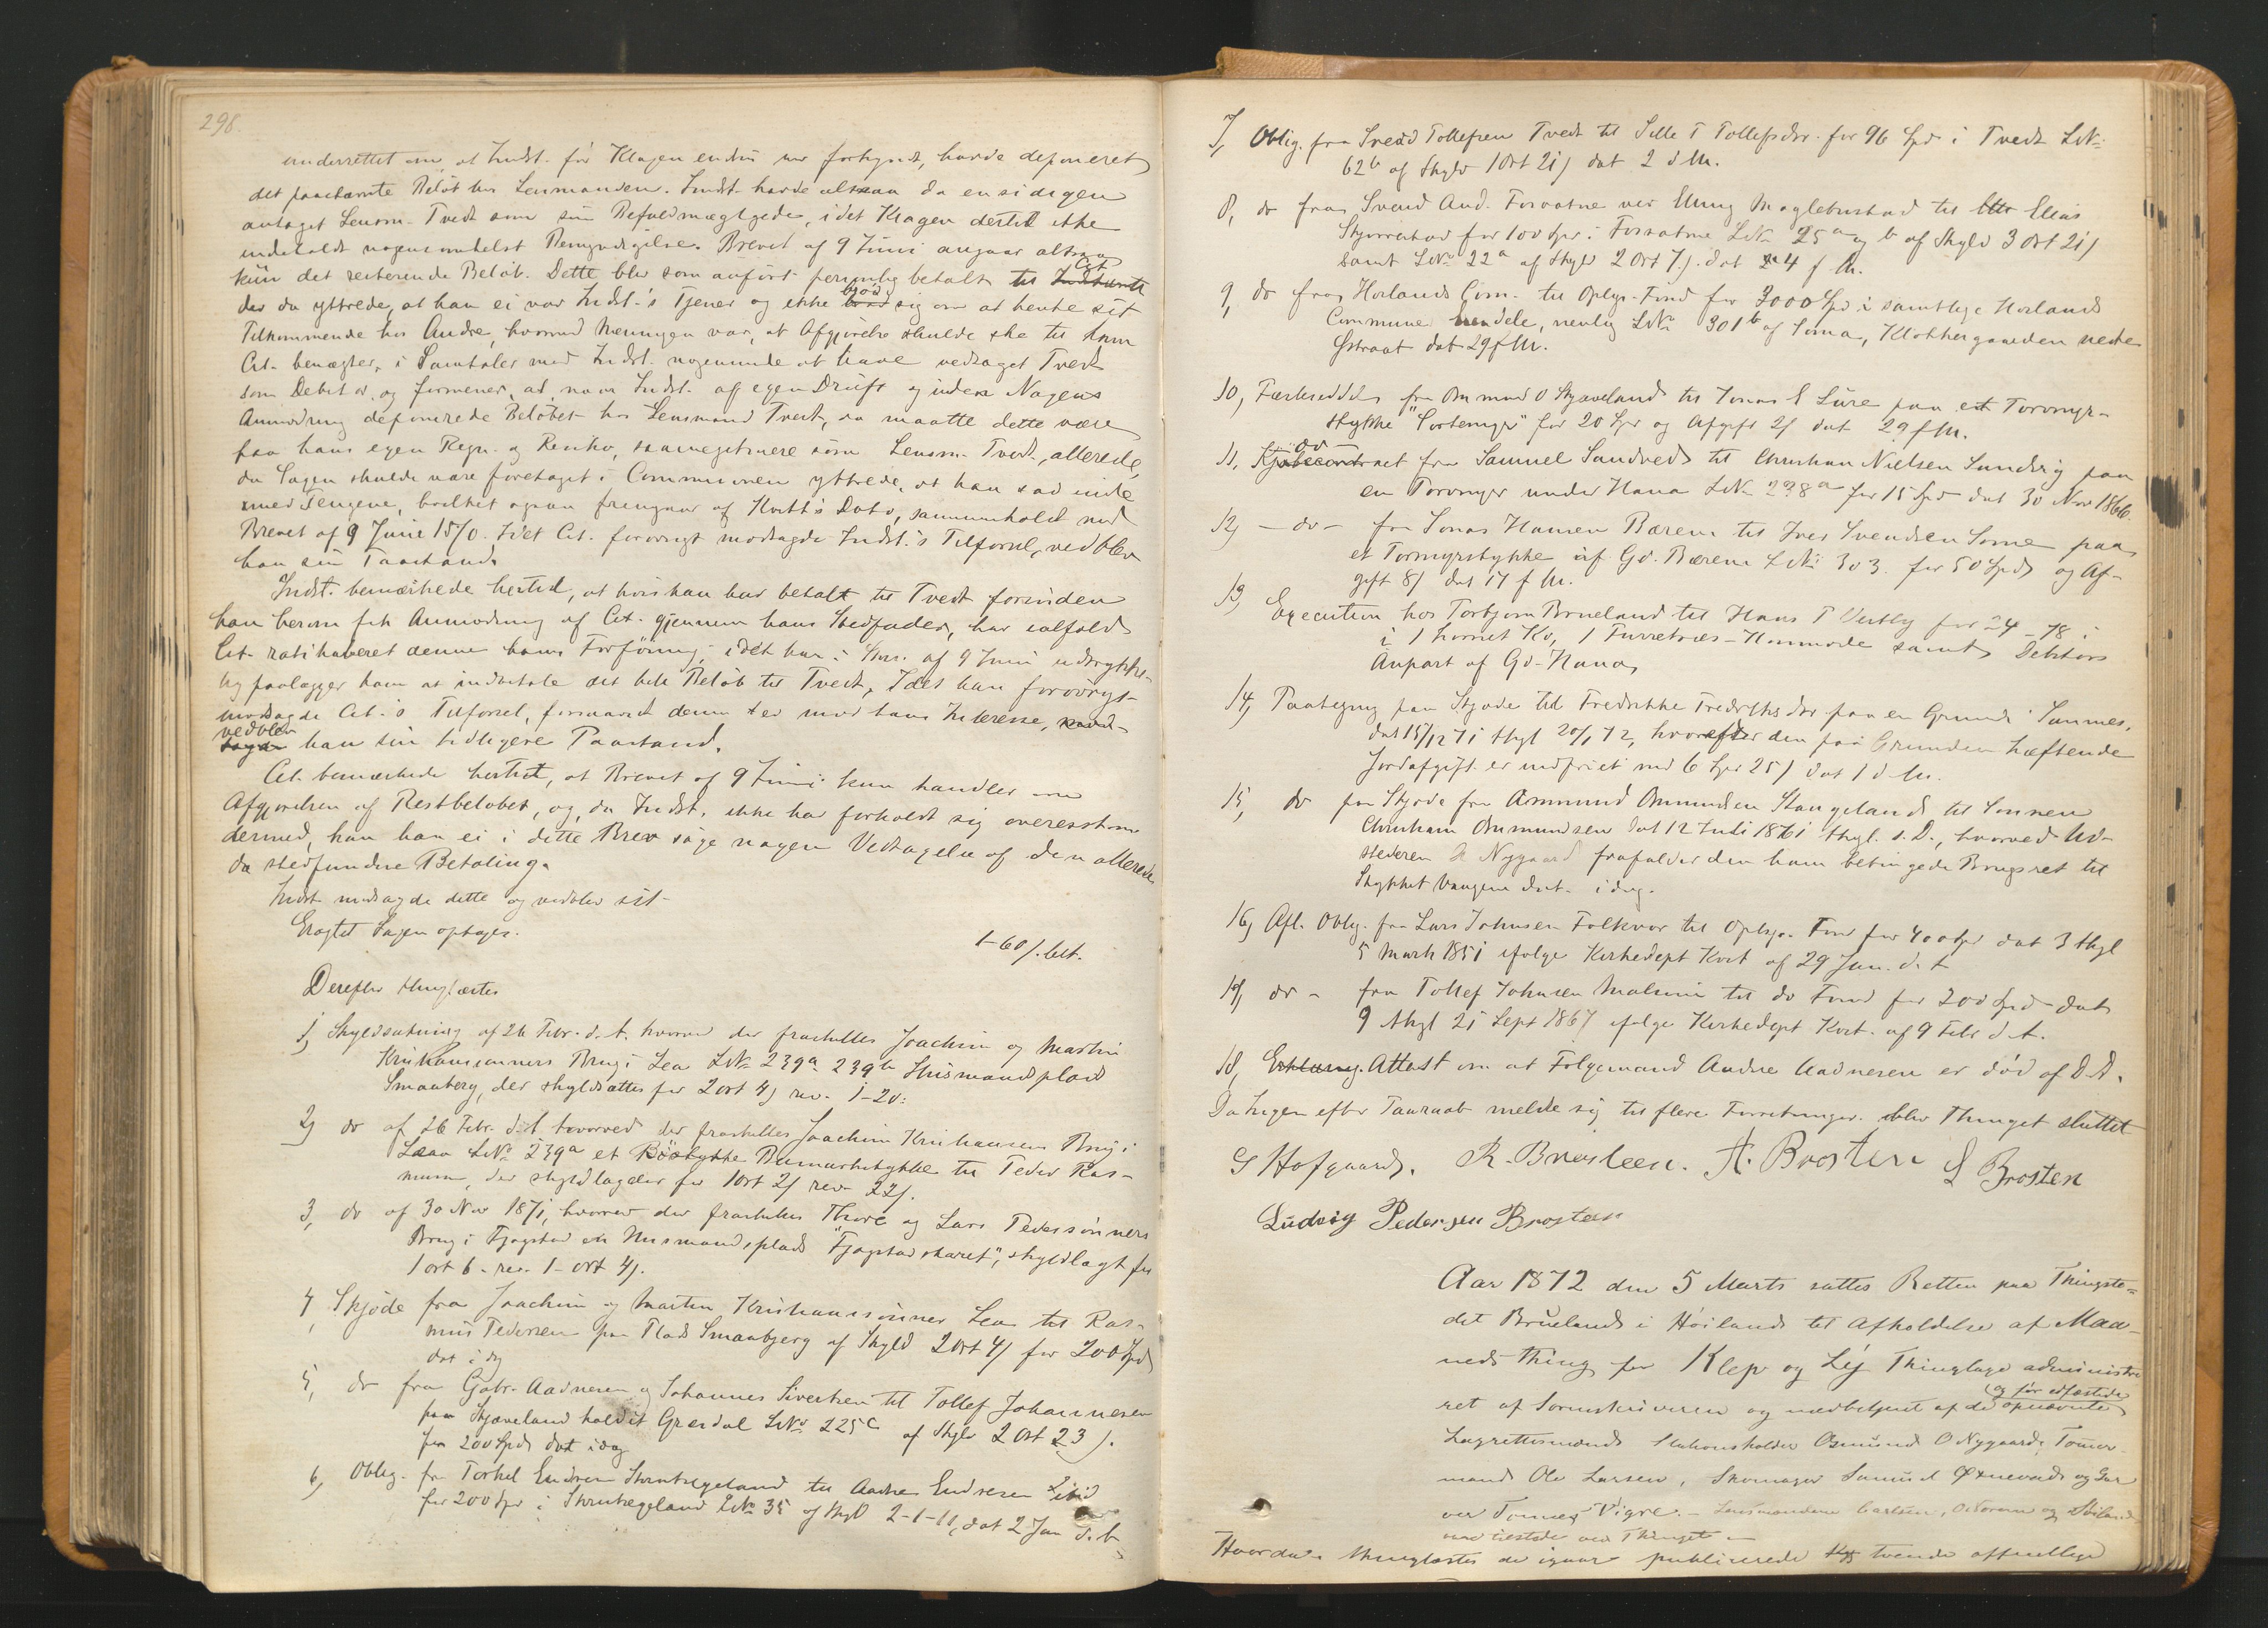 298.
underrettet om at Indst. før Klagen endnu var forkyndt, havde deponeret
det paastævnte Beløb hos Lensmanden. Indst. havde altsaa da ensidigen
antaget Lensm. Tvedt som sin Befuldmægtigede, idet Klagen dertil ikke
indeholdt nogensomhelst Bemyndigelse. Brevet af 9 Juni angaar altsaa
kun det resterende Beløb. Dette blev som anført personlig betalt til Indstævnte Cit.
der da yttrede, at han ei var Indst.'s Tjener og ikke brød sig om at hente sit
Tilkommende hos Andre, hvormed Meningen var, at Afgjørelse skulde ske til ham
Cit. benægter, i Samtaler med Indst. nogensinde at have vedtaget Tvedt
som Debitor, og formener, at naar Indst. af egen Drift og uden Nogens
Anmodning deponerede Beløbet hos Lensmand Tvedt, saa maatte dette være
paa hans egen Regn. og Risiko, saameget mere som Lensm. Tvedt, allerede
da Sagen skulde være foretaget i Commissionen yttrede, at han sad inde
med Pengene, hvilket ogsaa fremgaar af Dato, sammenholdt med
Brevet af 9 Juni 1870. Idet Cit. forøvrigt modsagde Indst.'s Tilførsel, vedblev
han sin Paastand.
Indst. bemærkede hertil, at hvis han har betalt til Tvedt forinden
han herom fik Anmodning af Cit. gjennem hans Stedfader, har ialfald
Cit. ratihaberet denne hans Forføining, idet han i Skr. af 9 Juni udtrykke-
lig paalægger ham at indbetale det hele Beløb til Tvedt. Idet han forøvrigt
modsagde Cit.'s Tilførsel, forsaavidt denne er mod hans Interesse,
vedblev han sin tidligere Paastand.
Cit. bemærkede hertil, at Brevet af 9 Juni kun handler om
Afgjørelsen af Restbeløbet, og da Indst. ikke har forholdt sig overensstem
dermed, kan han ei i dette Brev søge nogen Vedtagelse af den allerede
da stedfundne Betaling.
Indst. modsagde dette og vedblev sit.
Eragtet Sagen optages.
1-60 s. bet.
Derefter thinglæstes
1, Skyldsætning af 26 Febr. d. A. hvorved der fraskilles Joachim og Martin
Kristiansønners Brug i Lea LNo 239a 239b Husmandsplads
Smaaberg, der skyldsættes for 2 ort 4 s rev. 1-20:
2, do af 26 Febr. d. A. hvorved der fraskilles Joachim Kristiansens Brug i
Leaa LNo 239a et Bøstykke Bumarkstykke til Peder Ras-
mussen, der skyldlagdes for 1 ort 2 s rev. 22 s.
3, do af 30 Nov 1871, hvorved der fraskilles Thore og Lars Pedersønners
Brug i Fjogstad en Husmandsplads "Fjogstadskaret", skyldlagt for
1 ort 6 - rev. 1 - ort 4 s.
4, Skjøde fra Joachim og Martin Kristianssønner Lea til Ras-
mus Pedersen paa Plads Smaabjerg af Skyld 2 Ort 4 s for 200 Spd
dat i dg
5, do fra Gabr. Aadnesen og Johannes Sivertsen til Tollef Johannesen
paa Skjæveland kaldet Græsdal LNo 225c af Skyld 2 Ort 23 s.
for 200 Spd dat idag
6, Oblig. fra Torkel Endresen Stortregeland til Aadne Endresen Ibid
for 200 Spd i Stortregeland LNo 35 af Skyld 2-1-11, dat 2 Jan d. A.
7, Oblig. fra Svend Tollefsen Tvedt til Sille T Tollefsdtr. for 96 Spd i Tvedt LNo
62b af Skyld 1 Ort 21 s dat 2 d M.
8, do fra Svend Aud. Forsatne ved Umyg Maglebustad til Elias
Skjørestad for 100 Spd i Forsatne LNo 25a og b af Skyld 3 Ort 21 s
samt LNo 22a af Skyld 2 Ort 7 s. dat 24 f M.
9, do fra Hølands Com. til Oplys. Fond for 3000 Spd i samtlige Hølands
Commune Eiendele, nemlig LNo 301b af Soma, Klokkergaarden nedre
Hstraat dat 29 f M.
10, Fæsteseddel fra Ommund O Skjæveland til Jonas L Lure paa et Torvmyr-
stykke "Sortemyr" for 20 Spd og Afgift 2 s dat 29 f M.
11, Kjøbecontract do fra Samuel Sandved til Christian Nielsen Sandvig paa
en Torvmyr under Hana LNo 298a for 15 Spd dat 30 Nov 1866.
12, - do - fra Jonas Hansen Bærem til Iver Svendsen Some paa
et Tormyrstykke af Gd. Bærem LNo 303 for 50 Spd og Af-
gift 8 s dat 17 f M.
13, Execution hos Torbjørn Brueland til Hans T Vestly for 24 - 78 i
i 1 hornet Ko, 1 Furretræs-Kommode samt Debitors
Anpart af Gd. Hana
14, Paategng paa Skjøde til Fredrikke Fredriksdtr paa en Grund i Sannes,
dat 15/12 71 thgl 20/1 72, hvorefter den paa Grunden hæftende
Jordafgift er indfriet med 6 Spd 25 s dat 1 d. M.
15, do paa Skjøde fra Ommund Ommundsen Stangeland til Sønnen
Christian Ommundsen dat 12 Juli 1861 thgl. s. D., hvorved Ud-
stederen Nygaard frafalder den ham betingede Brugsret til
Stykket Vangene dat. i dag.
16, Afl. Oblig. fra Lars Johnsen Folkvor til Oplys. Fond for 400 Spd dat 3 thgl
5 Marts 1851 ifølge Kirkedept Kvit. af 29 Jan. d. A
17, do - fra Tollef Johnsen Malmin til do Fond for 200 Spd dat
9 thgl 21 Sept 1867 ifølge Kirkedept Kvit. af 9 Febr d. A.
18, Attest om at Følgemand Andre Aadnesen er død af D. A.
Da Ingen efter Paaraab meldte sig til flere Forretninger. blev Thinget sluttet
S Hofgaard. R. Brusteen. A. Brosten S Brosten
Ludvig Pedersen Brosten
Aar 1872 den 5 Marts sattes Retten paa Thingste-
det Brueland i Høiland til Afholdelse af Maa-
neds thing for Klep og Ly Thinglage administre
ret af Sorenskriveren og medbetjent af de opnævnte og før edfæstede
Lagrettesmænd Stationsholder Osmund O Nygaard, Tømer-
mand Ole Larsen, Skomager Samuel Øxnevad og Gar
ver Tønnes Vigre. - Lensmændene Carlsen, og Høiland
var tilstede ved Thinget -
Hvorda thinglæstes de igaar publicerede tvende offentlige